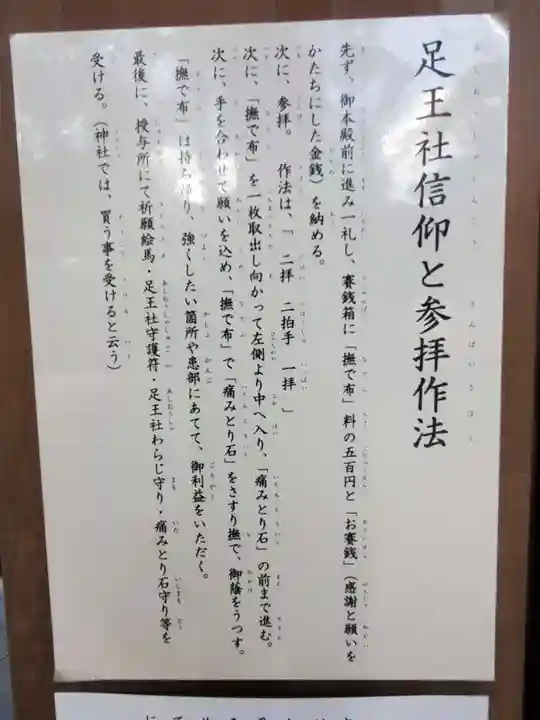 足王社信仰と参拝作法
先ず、御本殿前に進み一礼し、賽銭箱に「撫で布」料の五百円と「お賽銭」(感謝と願いを
かたちにした金銭)を納める。
次に、参拝。 作法は、「 二拝 二拍手 一拝 」
次に、「撫で布」を一枚取出し向かって左側より中へ入り、「痛みとり石」の前まで進む。
次に、手を合わせて願いを込め、「撫で布」で「痛みとり石」をさすり撫で、御陰をうつす。
「撫で布」は持ち帰り、強くしたい箇所や患部にあてて、御利益をいただく。
最後に、授与所にて祈願絵馬・足王社守護符・足王社わらじ守り・痛みとり石守り等を
受ける。(神社では、買う事を受けると云う)